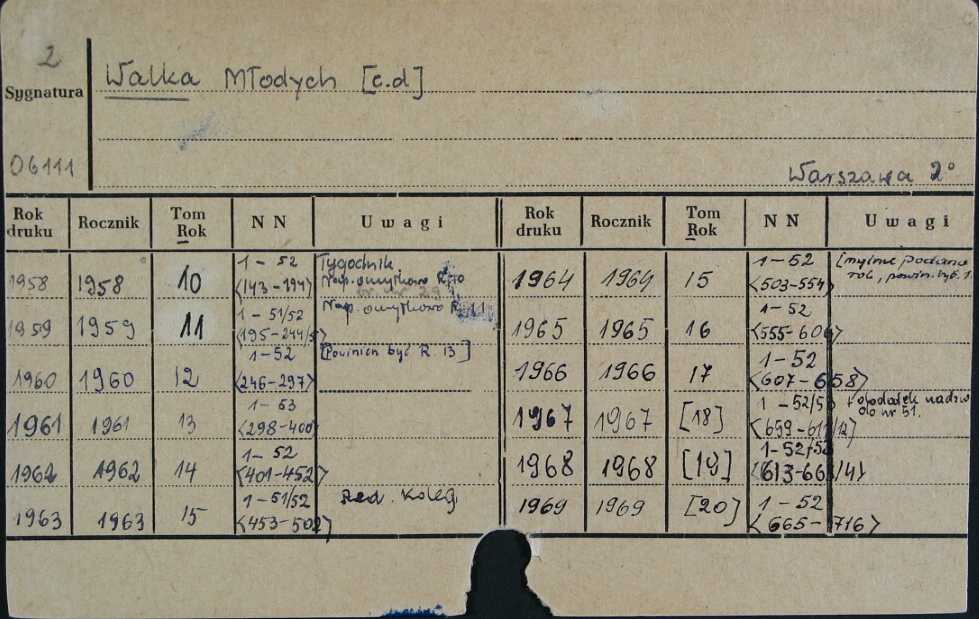 2
Walka Młodych [c.d]
Sygnatura
06111
Warszawa 2°
Rok druku Rocznik Tom Rok N N Uwagi Rok druku Rocznik Tom Rok N N Uwagi
1958 1958 10 1 – 52 Tygodnik 1964 1964 15 1 – 52 [mylnie podano
<143-194> Nap. omyłkowo R. <503-554> rok, powin. być
1959 1959 11 1 – 51/52 Nap. omyłkowo R. 11 1965 1965 16 1 – 52
<195-244/5> <555-606>
1960 1960 12 1-52 [Powinien być R. 13] 1966 1966 17 1 – 52
<246-297> <607-658>
1961 1961 13 1 – 53 1967 1967 [18] 1 – 52/53 + dodatek nadzw
<298-400> <659- do nr 51.
1962 1962 14 1 – 52 1968 1968 [19] 1-52/53
<401-452> <613-663/4>
1963 1963 15 1 – 51/52 Red. Koleg. 1969 1969 [20] 1 – 52
<453-502> <665-716>